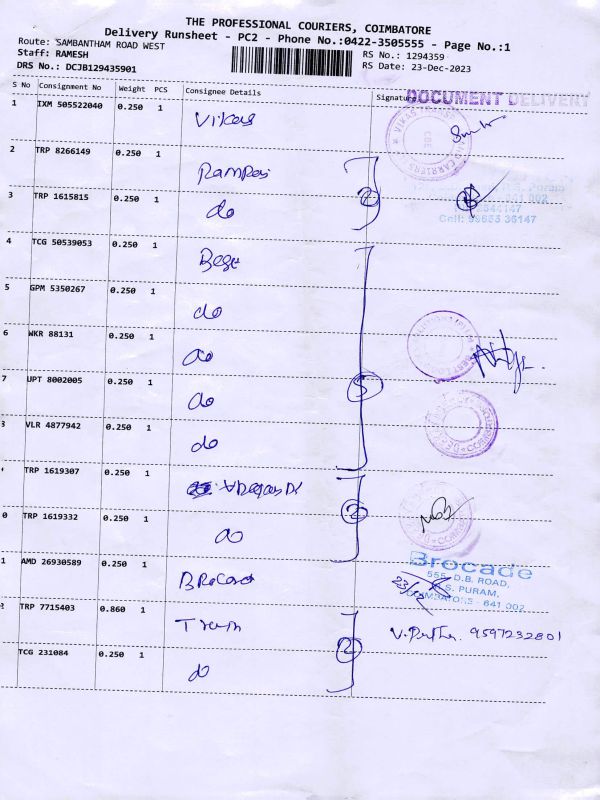 THE PROFESSIONAL COURIERS, COIMBATORE
Delivery Runsheet - PC2 - Phone No.:0422-3505555 - Page No.:1
Route: SAMBANTHAM ROAD WEST
Staff: RAMESH
DRS No.: DCJB129435901
RS No.: 1294359
RS Date: 23-Dec-2023
S No Consignment No Weight PCS Consignee Details Signature
DOCUMENT DELIVERY
1 IXM 505522040 0.250 1 Vikas
2 TRP 8266149 0.250 1
3 TRP 1615815 0.250 1 do
2
Cell: 99653 36147
4 TCG 50539053 0.250 1
5 GPM 5350267 0.250 1 do
6 WKR 88131 0.250 1 do
7 UPT 8002005 0.250 1 do
5
8 VLR 4877942 0.250 1 do
TRP 1619307 0.250 1
2
0 TRP 1619332 0.250 1 do
1 AMD 26930589 0.250 1
Brocade
555, D.B. ROAD,
R.S. PURAM,
COIMBATORE - 641 002
2 TRP 7715403 0.860 1
9597232801
2
TCG 231084 0.250 1 do